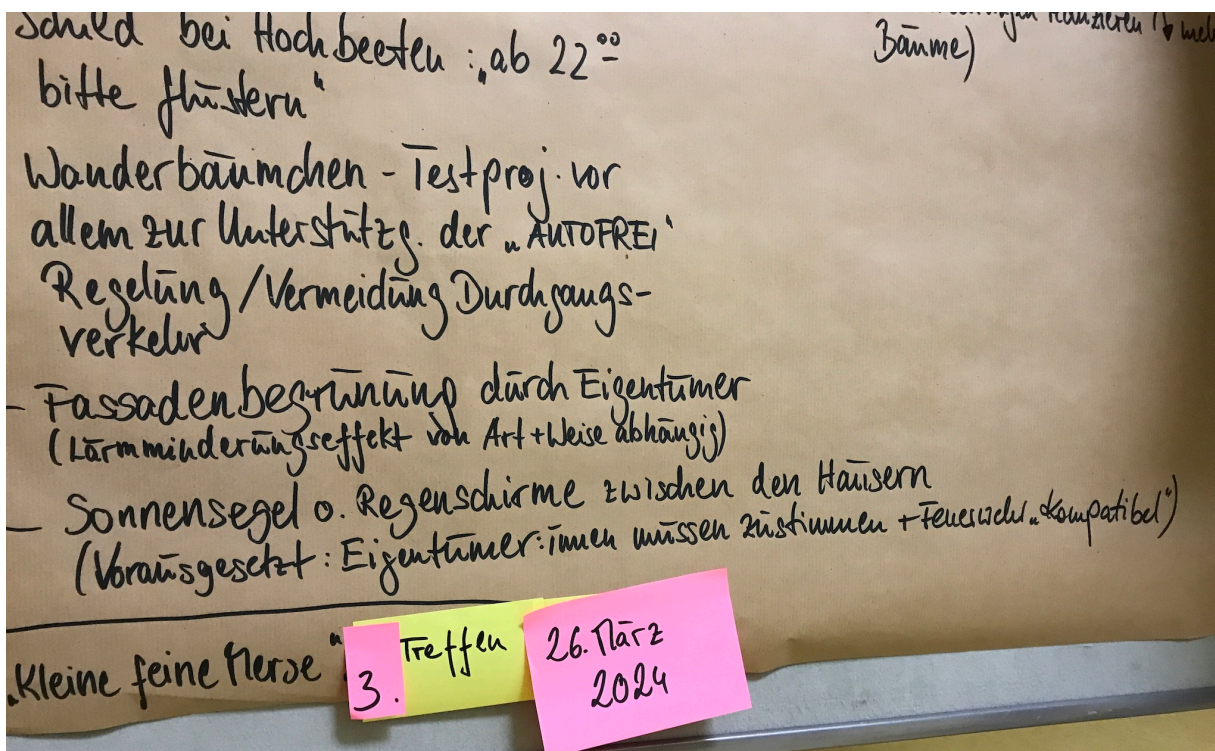 Schild bei Hochbeeten : „ab 22⁰⁰
bitte flüstern"
Wanderbäumchen - Testproj. vor
allem zur Unterstützg. der „AUTOFREI"
Regelung / Vermeidung Durchgangs-
verkehr
- Fassadenbegrünung durch Eigentümer
(Lärmminderungseffekt von Art + Weise abhängig)
- Sonnensegel o. Regenschirme zwischen den Häusern
(Vorausgesetzt : Eigentümer:innen müssen zustimmen + Feuerwehr „kompatibel")
„Kleine feine Merse"
3. Treffen 26. März
2024
reduzieren ↓ mehr
Bäume)